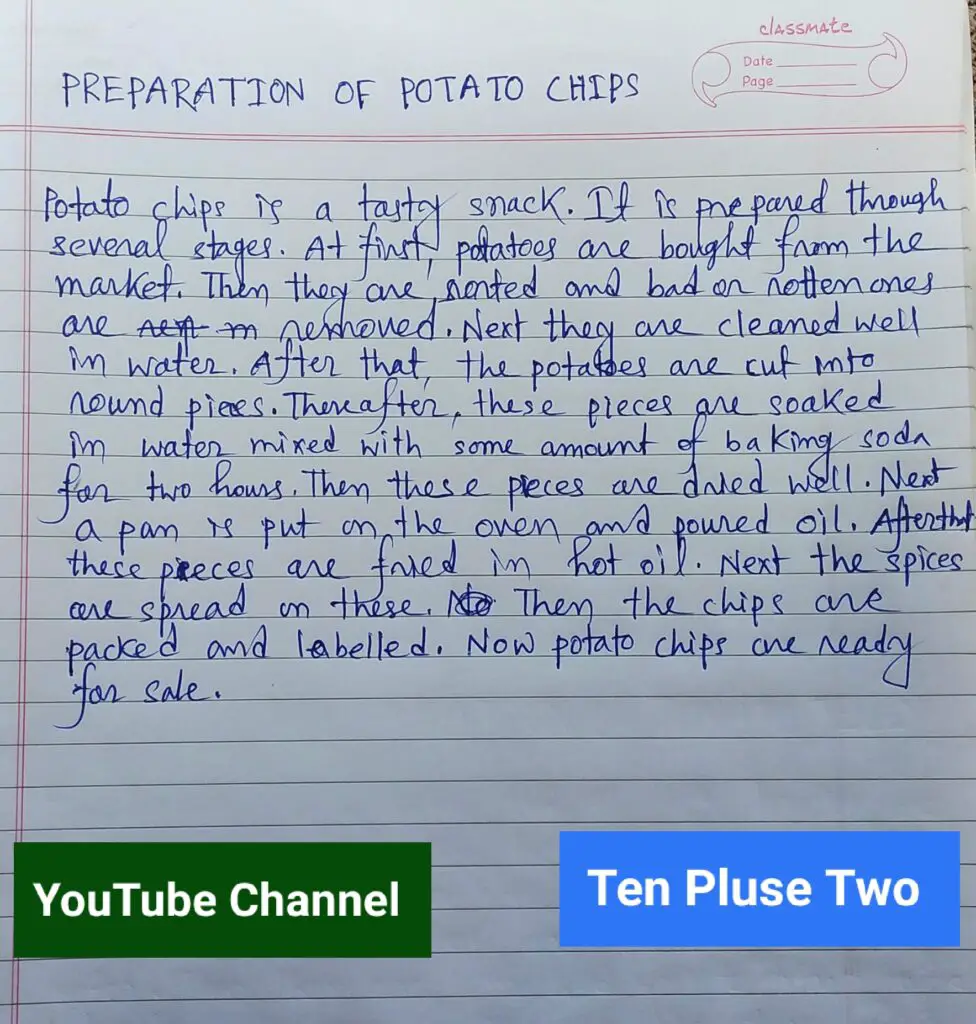 classmate
Date
Page
PREPARATION OF POTATO CHIPS
Potato chips is a tasty snack. It is prepared through
several stages. At first, potatoes are bought from the
market. Then they are sorted and bad or rotten ones
are removed. Next they are cleaned well
in water. After that, the potatoes are cut into
round pieces. Thereafter, these pieces are soaked
in water mixed with some amount of baking soda
for two hours. Then these pieces are dried well. Next
a pan is put on the oven and poured oil. After that
these pieces are fried in hot oil. Next the spices
are spread on these. Then the chips are
packed and labelled. Now potato chips are ready
for sale.
YouTube Channel
Ten Pluse Two